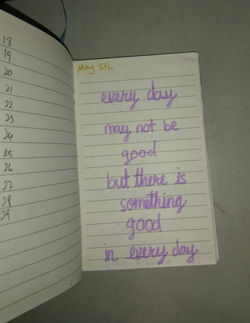 18
19
20
21
22
23
24
25
26
27
28
29
May 5th
every day
may not be
good
but there is
something
good
in every day